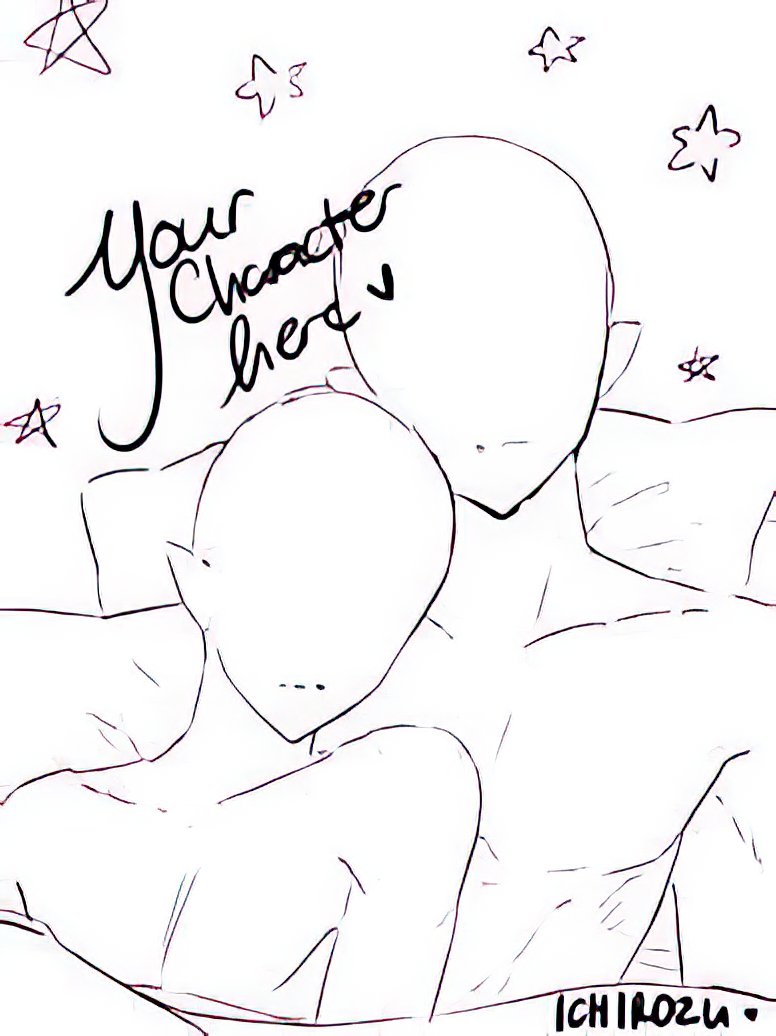 Your
Character
here
ICHIROZU